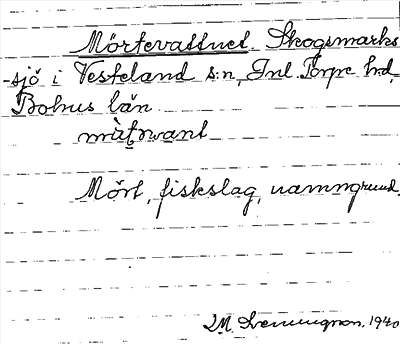 Mörtevattnet. Skogsmarks
-sjö i Vesteland s:n, Inl. Torpe hrd,
Bohus län
Mört, fiskslag, namngrund.
M. Svenningson. 1940